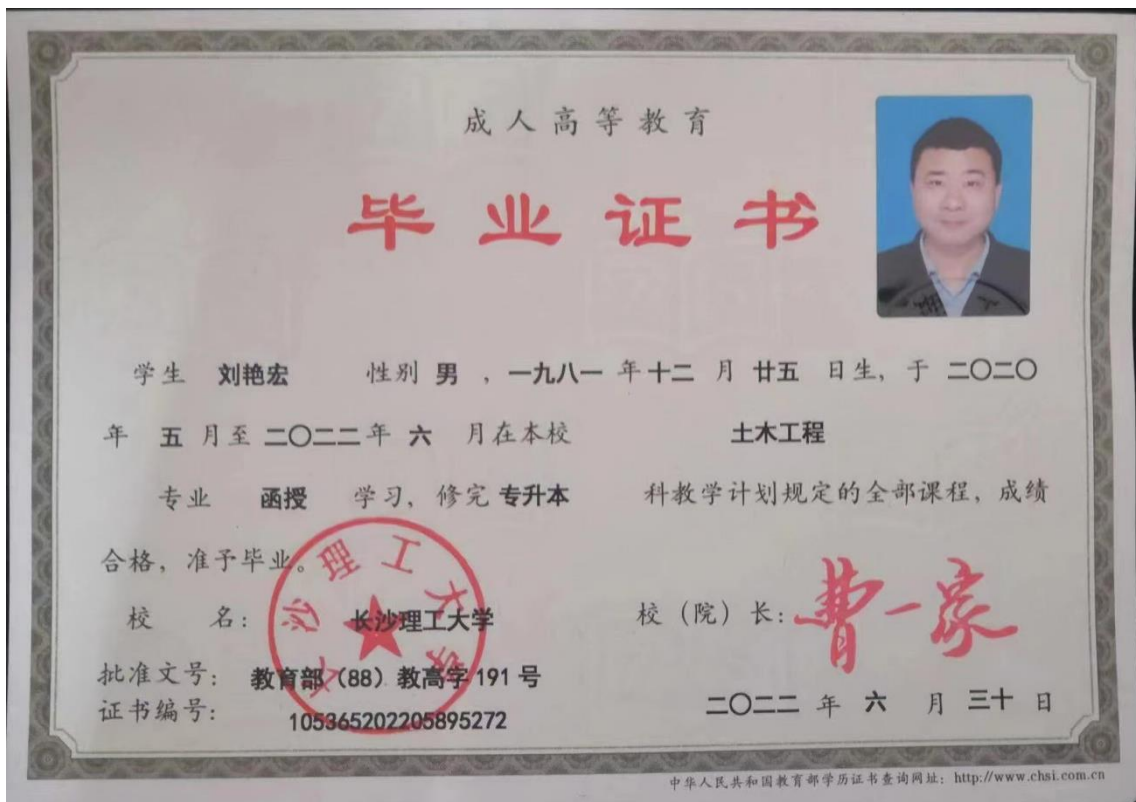 成人高等教育
毕业证书
学生 刘艳宏 性别 男 ,一九八一 年 十二 月 廿五 日生, 于 二〇二〇
年 五 月至 二〇二二 年 六 月在本校 土木工程
专业 函授 学习, 修完 专升本 科教学计划规定的全部课程, 成绩
合格, 准予毕业。
长沙理工大学
校 名: 长沙理工大学 校(院)长: 曹一家
批准文号: 教育部(88)教高字191号
证书编号: 105365202205895272
二〇二二 年 六 月 三十 日
中华人民共和国教育部学历证书查询网址: http://www.chsi.com.cn